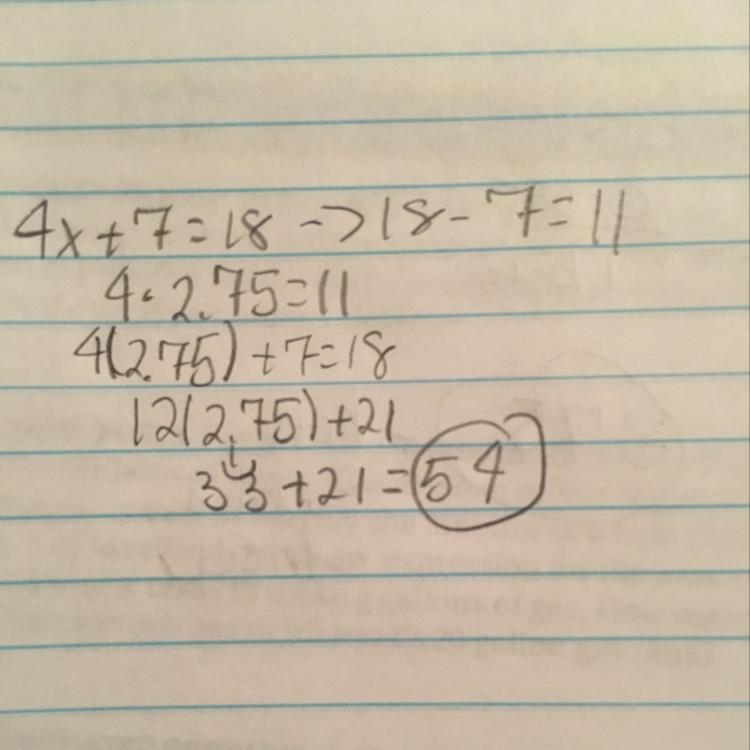 4x+7=18 -> 18-7=11
4·2.75=11
4(2.75)+7=18
12(2.75)+21
33+21=54